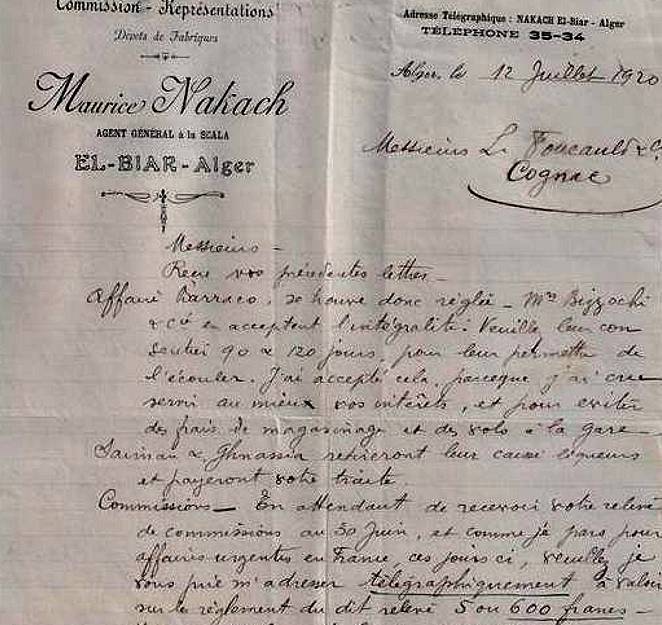 Commission - Représentations
Dépots de Fabriques
Maurice Nakach
AGENT GÉNÉRAL à la SCALA
EL-BIAR - Alger
Adresse Télégraphique : NAKACH El-Biar - Alger
TÉLÉPHONE 35-34
Alger, le 12 Juillet 1920
Messieurs L. Foucauld & C.
Cognac
Messieurs -
Recu vos précédentes lettres -
Affaire Barraco, se trouve donc réglée - Mrs Bizzochi
& Cie en acceptent l'intégralité : Veuillez leur con
sentir 90 à 120 jours, pour leur permettre de
l'écouler. J'ai accepté cela, parceque j'ai cru
servir au mieux vos intérêts, et pour eviter
des frais de magasinage et des vols à la gare
& Ghnassia retireront leur caisse liqueurs
et payeront votre traite.
Commissions - En attendant de recevoir votre relevé
de commissions au 30 Juin, et comme je pars pour
affaires urgentes en France, ces jours ci, veuillez je
vous prie m'adresser télégraphiquement à valoir
sur le règlement du dit relevé 5 ou 600 francs -